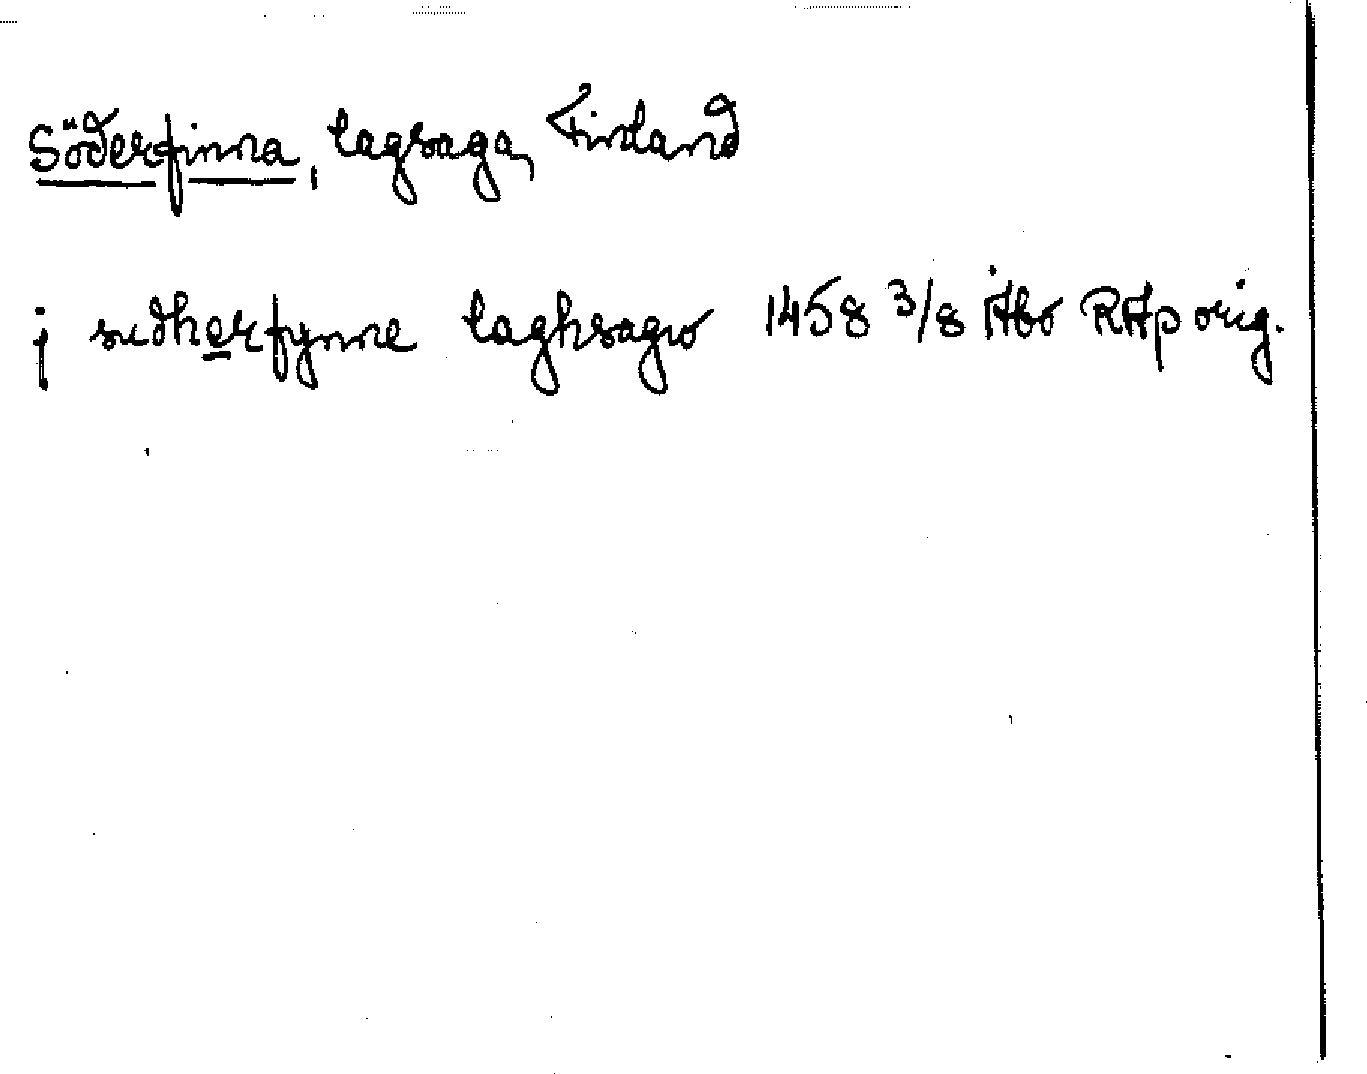 Söderfinna, lagsaga, Finland
j sudherfynne laghsagw 1458 3/8 Åbo RAp orig.